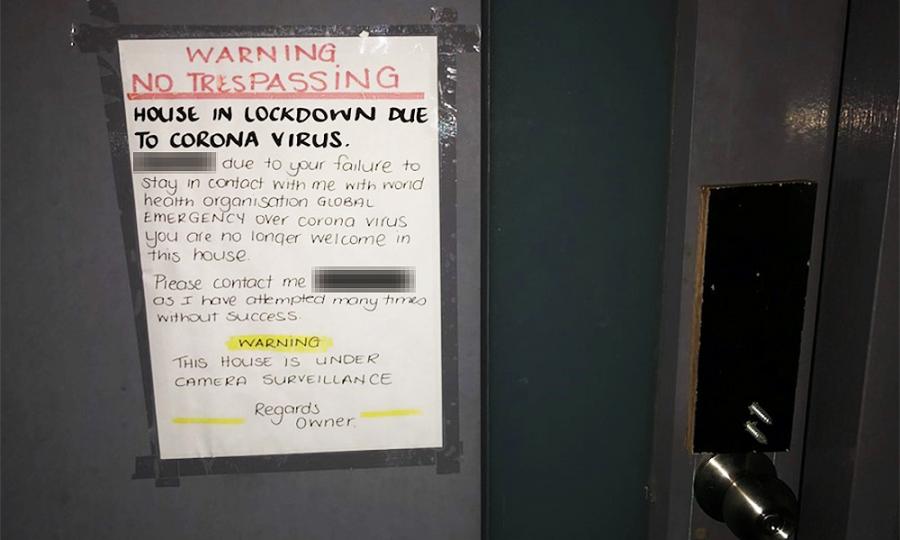 WARNING
NO TRESPASSING
HOUSE IN LOCKDOWN DUE
TO CORONA VIRUS.
due to your failure to
stay in contact with me with world
health organisation GLOBAL
EMERGENCY over corona virus
you are no longer welcome in
this house.
Please contact me
as I have attempted many times
without success.
WARNING
THIS HOUSE IS UNDER
CAMERA SURVEILLANCE
Regards
Owner.